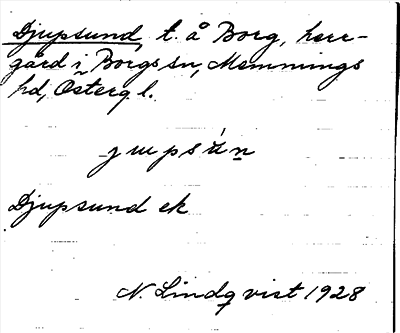 Djupsund, t. å Borg, herr-
gård i Borgs sn, Memmings
hd, Östergl.
jupsún
Djupsund ek
N. Lindqvist 1928